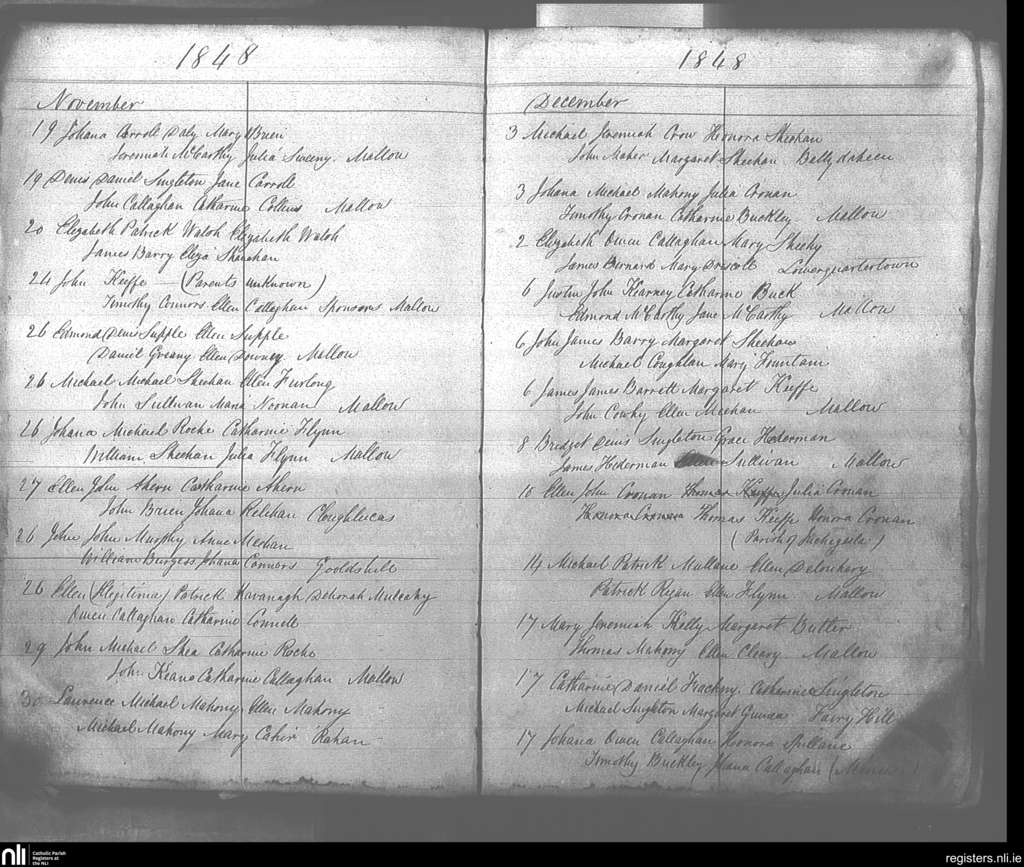 1848
November
19 Johana Carroll Daly Mary Brien
Jeremiah McCarthy Julia Sweeny. Mallow
19 Denis Daniel Singleton Jane Carroll
John Callaghan Catharine Collins Mallow
20 Elizabeth Patrick Walsh Elizabeth Walsh
James Barry Eliza Shanahan
24 John Keeffe — (Parents unknown)
Timothy Connors Ellen Callaghan Sponsors Mallow
26 Edmond Denis Supple Ellen Supple
Daniel Greany Ellen Downey Mallow
26 Michael Michael Sheehan Ellen Furlong
John Sullivan Maria Noonan Mallow
26 Johana Michael Roche Catharine Flynn
William Sheehan Julia Flynn Mallow
27 Ellen John Ahern Catharine Ahern
John Brien Johana Relehan Cloughlucas
26 John John Murphy Anne Meehan
William Burgess Johana Connors Gooldshill
26 Ellen (Illegitime) Patrick Kavanagh Deborah Mulcahy
Owen Callaghan Catharine Connell
29 John Michael Shea Catharine Roche
John Keane Catharine Callaghan Mallow
30 Lawrence Michael Mahony Ellen Mahony
Michael Mahony Mary Cahir Rahan
1848
December
3 Michael Jeremiah Crow Honora Sheehan
John Maher Margaret Sheehan Ballydaheen
3 Johana Michael Mahony Julia Cronan
Timothy Cronan Catharine Buckley Mallow
2 Elizabeth Owen Callaghan Mary Sheehy
James Bernard Mary Driscoll Lowerquartertown
6 Justin John Kearney Catharine Buck
Edmond McCarthy Jane McCarthy Mallow
6 John James Barry Margaret Sheehan
Michael Coughlan Mary Fountain
6 James James Barrett Margaret Keeffe
John Cowhy Ellen Meehan Mallow
8 Bridget Denis Singleton Grace Hederman
James Hederman Sullivan Mallow
10 Ellen John Cronan Thomas Keeffe Julia Cronan
Honora Cronan Thomas Keeffe Honora Cronan
(Parish of Inchigeela)
14 Michael Patrick Mullane Ellen Delouhery
Patrick Ryan Ellen Flynn Mallow
17 Mary Jeremiah Kelly Margaret Butler
Thomas Mahony Ellen Cleary Mallow
17 Catharine Daniel Catharine Singleton
Michael Singleton Margaret Fairy Hill
17 Johana Owen Callaghan Honora Spillane
Timothy Buckley Johana Callaghan
nli
Catholic Parish
Registers at
the NLI
registers.nli.ie